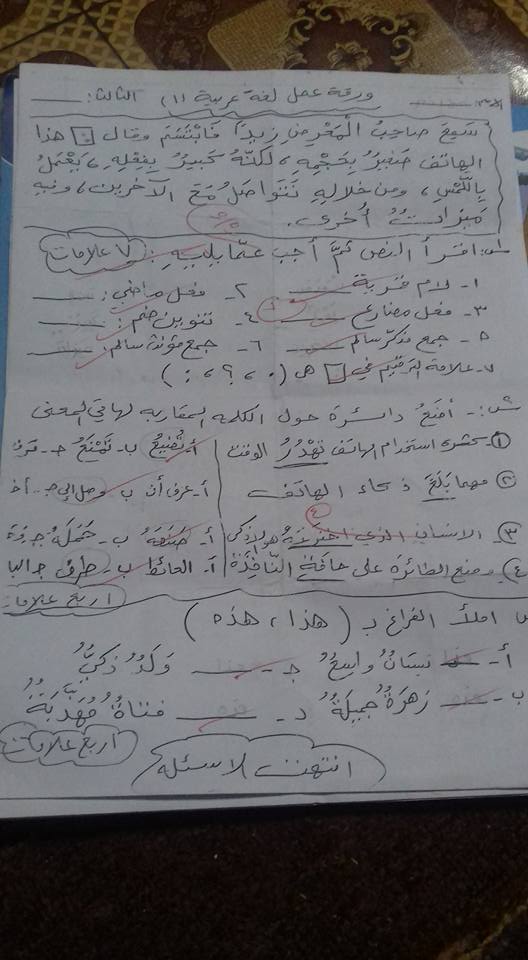 ورقة عمل لغة عربية (١) الثالث: ____
سَمِعَ صاحِبُ الْمَعْرِضِ زيدًا فَابْتَسَمَ وقال □ هذا
الهاتف صَغيرٌ بِحَجْمِهِ، لكنَّهُ كَبيرٌ بِفِعْلِهِ، يَعْمَلُ
بِاللَّمْسِ، ومن خلالِهِ نَتَواصَلُ مَعَ الآخرين، وفيه
ميزاتٌ أُخرى.
٥/٥
س١: اقرأ النص ثمَّ أجب عمّا يليه: ٧ علامات
١- لام قمرية ____ ٢- فعل ماضي: ____
٣- فعل مضارع ____ ٤- تنوين ضم: ____
٥- جمع مذكر سالم ____ ٦- جمع مؤنث سالم: ____
٧- علامة الترقيم في □ هي ( . ، ؟ ، : )
س٢:- أضَعُ دائرة حول الكلمه المقاربه لها في المعنى
① كثرة استخدام الهاتف تَهْدُرُ الوقت أ- تُضيعُ ب- تَمْنَعُ ج-
② مهما بَلَغَ ذكاء الهاتف أ- عرف أن ب- وصل إلى ج-
٤
③ الانسان الذي اخترعه هو الاذكى أ- صَنَعَهُ ب- حَمَلَهُ ج-
④ وضع الطائرة على حافَةِ النَّافِذَةِ أ- الحائط ب- طرف ج-
اربع علامات
املأ الفراغ بـ ( هذا ، هذه )
أ- هذا بستانٌ واسِعٌ ج- هذا وَلَدٌ ذكيٌّ
ب- هذه زهرةٌ جميلةٌ د- هذه فتاةٌ مُهَذَّبَةٌ
اربع علامات
انتهت الاسئله